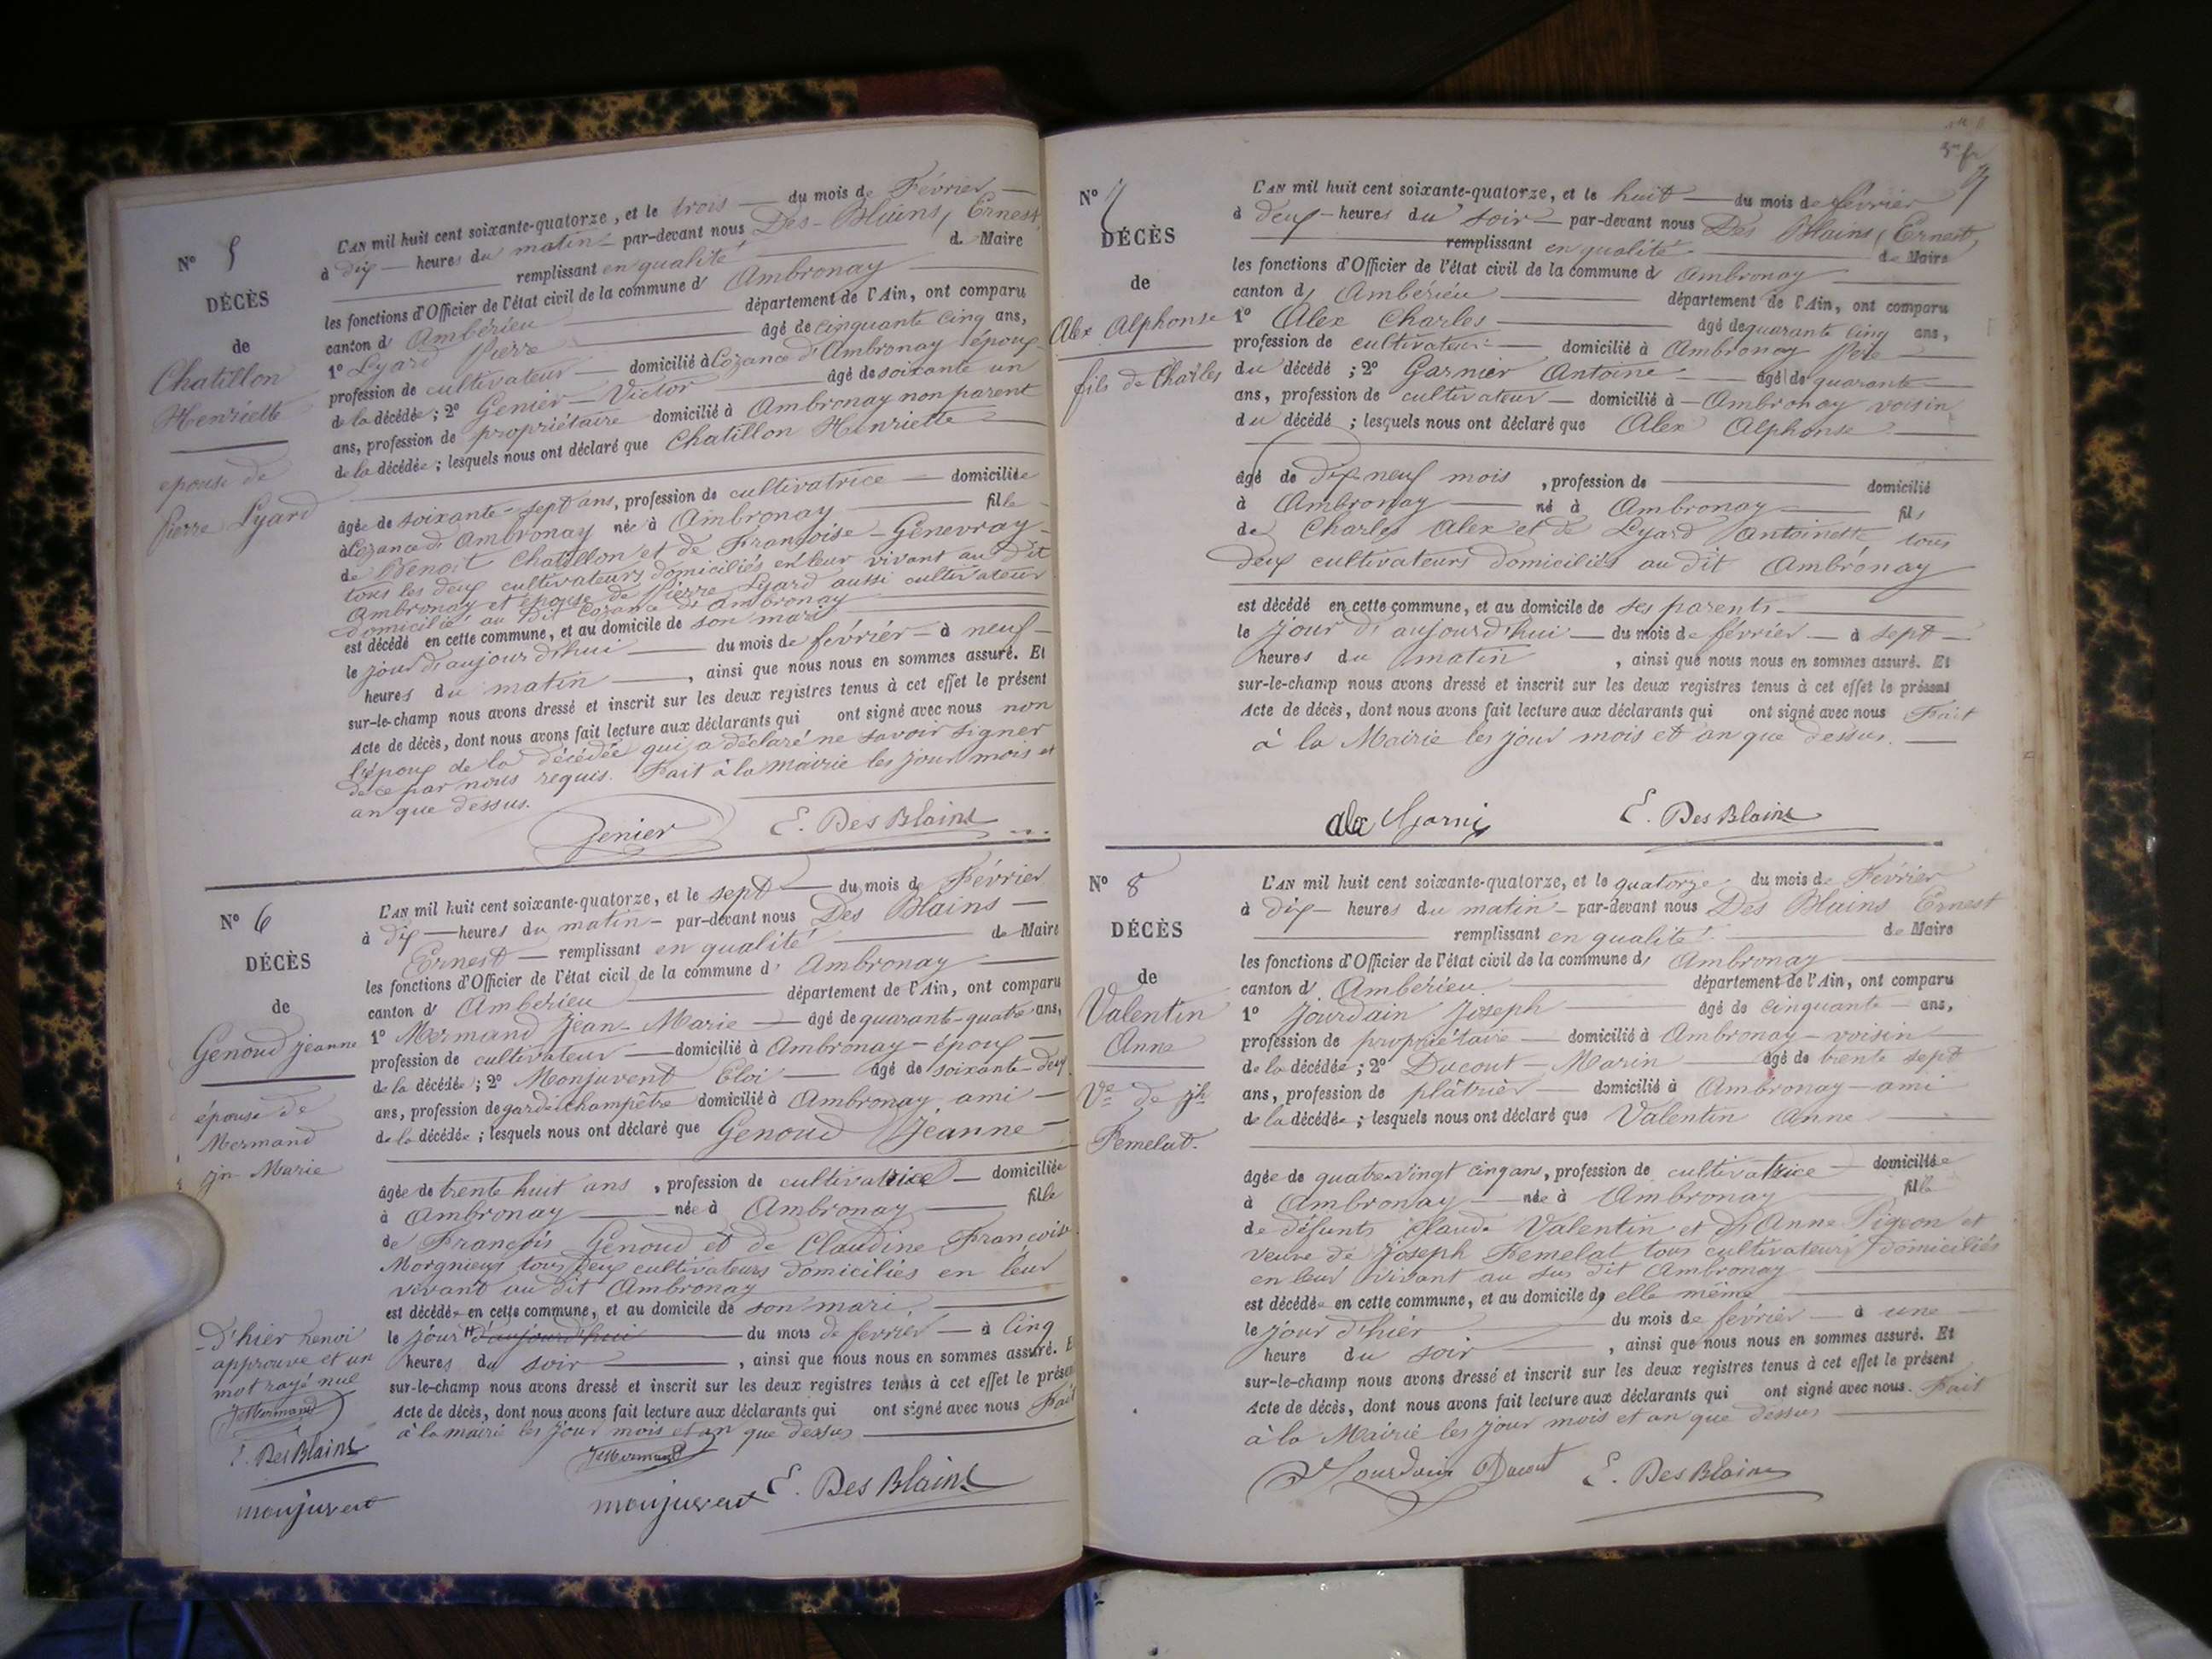 N° 5
DÉCÈS
de
Chatillon
Henriette
épouse de
Pierre Lyard
L'AN mil huit cent soixante-quatorze, et le trois du mois de Février
à dix heures du matin par-devant nous Des-Blains, Ernest,
remplissant en qualité de Maire
les fonctions d'Officier de l'état civil de la commune d' Ambronay
canton d' Ambérieu département de l'Ain, ont comparu
1° Lyard Pierre âgé de cinquante cinq ans,
profession de cultivateur domicilié à Cozance d'Ambronay époux
de la décédée ; 2° Genier Victor âgé de soixante un
ans, profession de propriétaire domicilié à Ambronay non parent
de la décédée ; lesquels nous ont déclaré que Chatillon Henriette
âgée de soixante-sept ans, profession de cultivatrice domiciliée
à Cozance d' Ambronay née à Ambronay fille
de Benoit Chatillon et de Françoise Genevray
tous les deux cultivateurs domiciliés en leur vivant au dit
Ambronay et épouse de Pierre Lyard aussi cultivateur
domicilié au dit Cozance d' Ambronay
est décédé en cette commune, et au domicile de son mari
le jour d'aujourd'hui du mois de février à neuf
heures du matin , ainsi que nous nous en sommes assuré. Et
sur-le-champ nous avons dressé et inscrit sur les deux registres tenus à cet effet le présent
Acte de décès, dont nous avons fait lecture aux déclarants qui ont signé avec nous non
l'époux de la décédée qui a déclaré ne savoir signer
de ce par nous requis. Fait à la mairie les jour mois et
an que dessus.
Genier E. Des Blains
N° 6
DÉCÈS
de
Genoud Jeanne
épouse de
Mermand
Jn Marie
L'AN mil huit cent soixante-quatorze, et le sept du mois de Février
à dix heures du matin par-devant nous Des Blains
Ernest remplissant en qualité de Maire
les fonctions d'Officier de l'état cicil de la commune d' Ambronay
canton d' Ambérieu département de l'Ain, ont comparu
1° Mermand Jean-Marie âgé de quarante-quatre ans,
profession de cultivateur domicilié à Ambronay époux
de la décédée ; 2° Monjuvent Eloi âgé de soixante-deux
ans, profession de garde champêtre domicilié à Ambronay ami
de la décédée ; lesquels nous ont déclaré que Genoud Jeanne
âgée de trente huit ans , profession de cultivatrice domiciliée
à Ambronay née à Ambronay fille
de François Genoud et de Claudine Françoise
Morgnieux tous deux cultivateurs domiciliés en leur
vivant au dit Ambronay
est décédée en cette commune, et au domicile de son mari,
le jour d'aujourd'hui du mois de février à cinq
heures du soir , ainsi que nous nous en sommes assuré. Et
sur-le-champ nous avons dressé et inscrit sur les deux registres tenus à cet effet le présent
Acte de décès, dont nous avons fait lecture aux déclarants qui ont signé avec nous Fait
à la mairie les jour mois et an que dessus
D'hier renvoi
approuvé et un
mot rayé nul
JMermand
E. Des Blains
monjuvent
JMermand
monjuvent E. Des Blains
3me fr
7
N° 7
DÉCÈS
de
Alex Alphonse
fils de Charles
L'AN mil huit cent soixante-quatorze, et le huit du mois de février
à deux heures du soir par-devant nous Des Blains, Ernest,
remplissant en qualité de Maire
les fonctions d'Officier de l'état civil de la commune d' Ambronay
canton d' Ambérieu département de l'Ain, ont comparu
1° Alex Charles âgé de quarante cinq ans,
profession de cultivateur domicilié à Ambronay Père
du décédé ; 2° Garnier Antoine âgé de quarante
ans, profession de cultivateur domicilié à Ambronay voisin
du décédé ; lesquels nous ont déclaré que Alex Alphonse
âgé de dix neuf mois , profession de domicilié
à Ambronay né à Ambronay fils
de Charles Alex et de Lyard Antoinette tous
deux cultivateurs domiciliés au dit Ambronay
est décédé en cette commune, et au domicile de ses parents
le jour d'aujourd'hui du mois de février à sept
heures du matin , ainsi que nous nous en sommes assuré. Et
sur-le-champ nous avons dressé et inscrit sur les deux registres tenus à cet effet le présent
Acte de décès, dont nous avons fait lecture aux déclarants qui ont signé avec nous Fait
à la Mairie les jour mois et an que dessus.
alex Garnier E. Des Blains
N° 8
DÉCÈS
de
Valentin
Anne
Ve de Jh
Femelat.
L'AN mil huit cent soixante-quatorze, et le quatorze du mois de Février
à dix heures du matin par-devant nous Des Blains Ernest
remplissant en qualité de Maire
les fonctions d'Officier de l'état civil de la commune d' Ambronay
canton d' Ambérieu département de l'Ain, ont comparu
1° Jourdain Joseph âgé de cinquante ans,
profession de propriétaire domicilié à Ambronay voisin
de la décédée ; 2° Ducout Marin âgé de trente sept
ans, profession de plâtrier domicilié à Ambronay ami
de la décédée ; lesquels nous ont déclaré que Valentin Anne
âgée de quatre vingt cinq ans, profession de cultivatrice domiciliée
à Ambronay née à Ambronay fille
de défunts Claude Valentin et d'Anne Pigeon et
veuve de Joseph Femelat tous cultivateurs domiciliés
en leur vivant au sus dit Ambronay
est décédée en cette commune, et au domicile d' elle même
le jour d'hier du mois de février à une
heure du soir , ainsi que nous nous en sommes assuré. Et
sur-le-champ nous avons dressé et inscrit sur les deux registres tenus à cet effet le présent
Acte de décès, dont nous avons fait lecture aux déclarants qui ont signé avec nous. Fait
à la Mairie les jour mois et an que dessus
Jourdain Ducout E. Des Blains